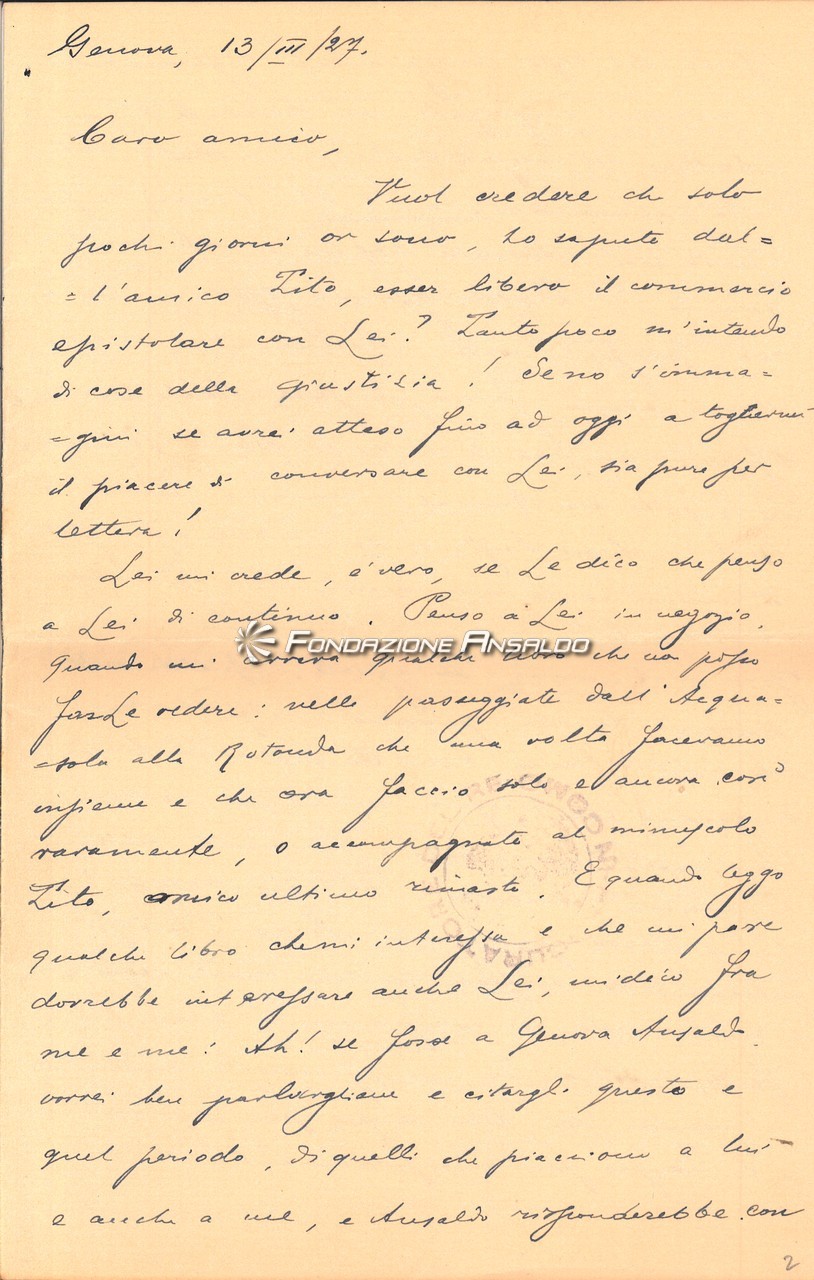 Genova, 13/III/27.
Caro amico,
Vuol credere che solo
pochi giorni or sono, ho saputo dal=
=l'amico Zito, esser libero il commercio
epistolare con Lei? Tanto poco m'intendo
di cose della giustizia! Se no s'imma=
=gini se avrei atteso fino ad oggi a togliermi
il piacere di conversare con Lei, sia pure per
lettera!
Lei mi crede, è vero, se Le dico che penso
a Lei di continuo. Penso a Lei in negozio,
quando mi arriva qualche libro che non posso
FONDAZIONE ANSALDO
farLe vedere: nelle passeggiate dall'Acqua=
=sola alla Rotonda che una volta facevamo
insieme e che ora faccio solo e ancora così
raramente, o accompagnato al minuscolo
Zito, amico ultimo rimasto. E quando leggo
qualche libro che mi interessa e che mi pare
dovrebbe interessare anche Lei, mi dico fra
me e me: Ah! se fosse a Genova Ansaldo
vorrei ben parlargliene e citargli questo e
quel periodo, di quelli che piacciono a lui
e anche a me, e Ansaldo risponderebbe con
2